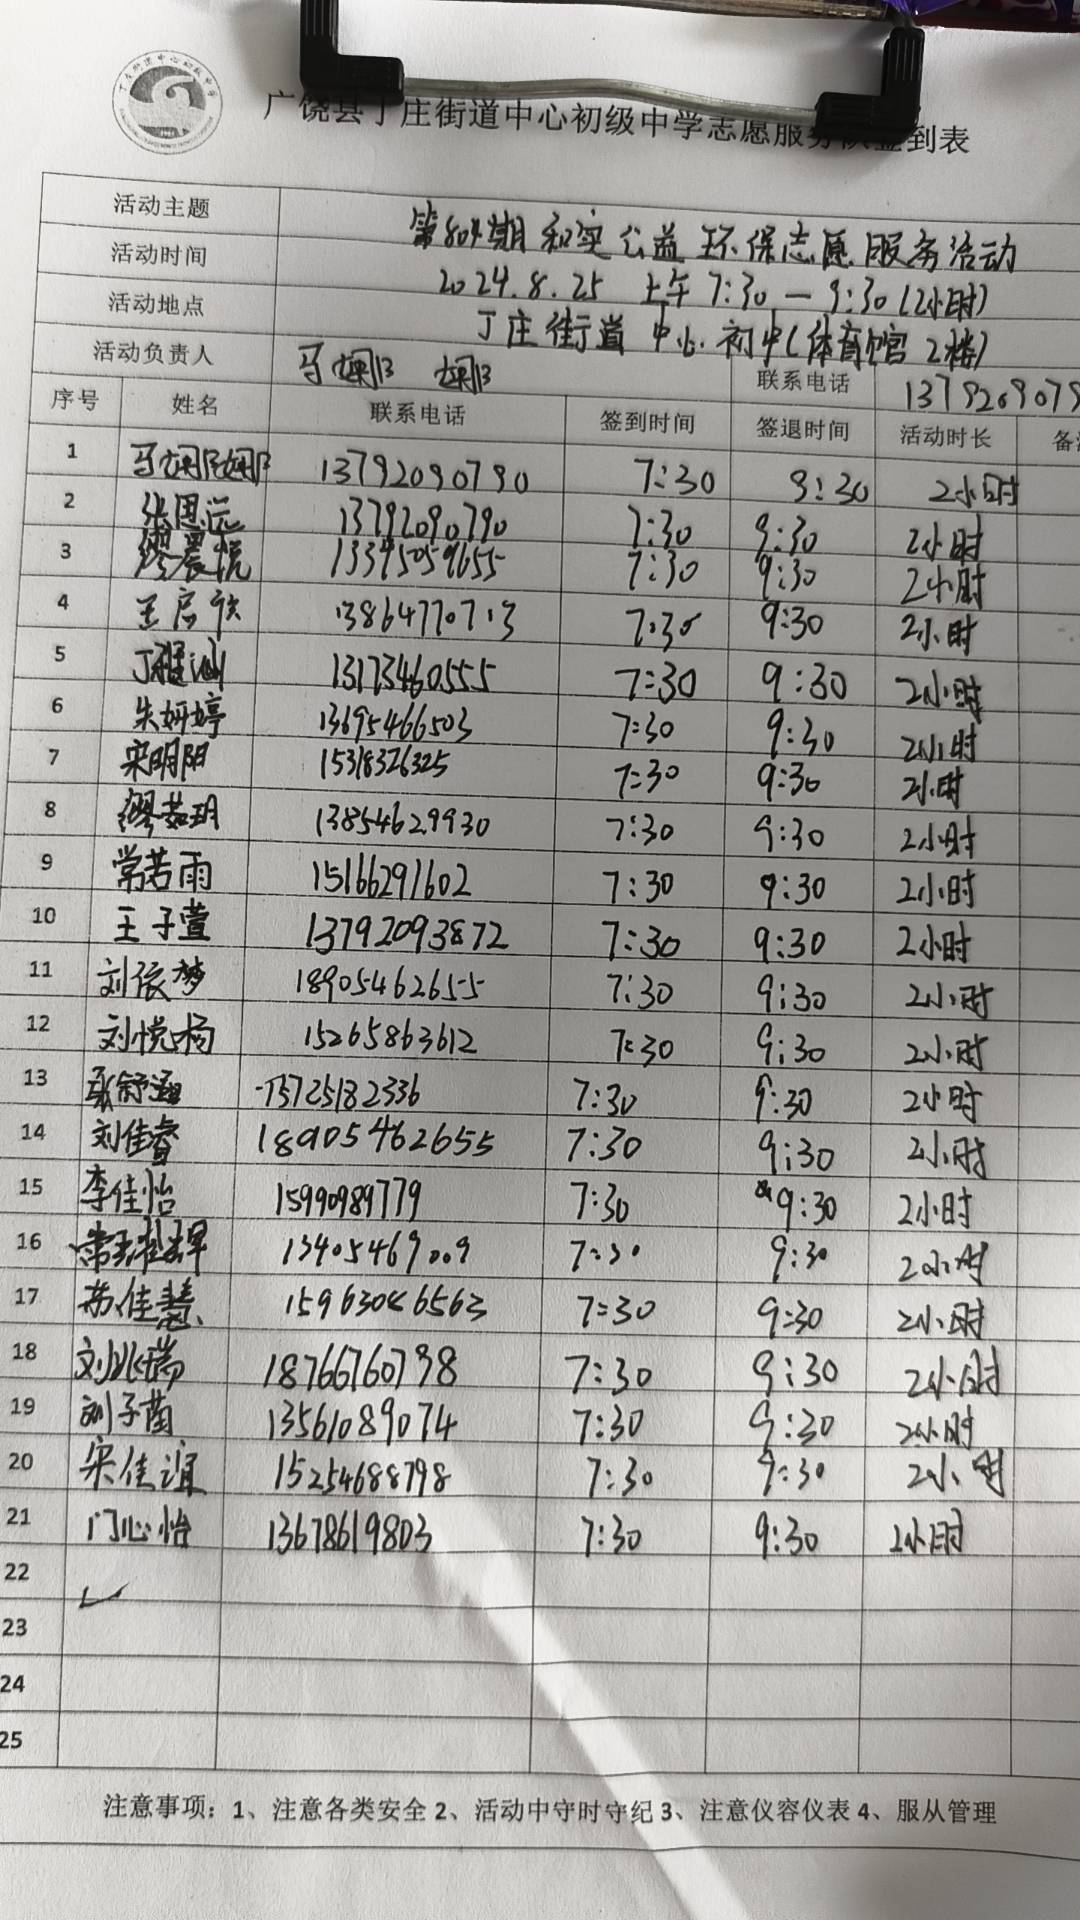 广饶县丁庄街道中心初级中学志愿服务队签到表
活动主题 第804期和实公益环保志愿服务活动
活动时间 2024.8.25 上午7:30—9:30(2小时)
活动地点 丁庄街道中心初中(体育馆2楼)
活动负责人 马娴娴 联系电话 1379209079
序号 姓名 联系电话 签到时间 签退时间 活动时长 备注
1 马娴娴 13792090790 7:30 9:30 2小时
2 张恩远 13792090790 7:30 9:30 2小时
3 缪晨悦 13395059655 7:30 9:30 2小时
4 王启 13864770713 7:30 9:30 2小时
5 丁雅汕 13173460555 7:30 9:30 2小时
6 朱妍婷 13695466503 7:30 9:30 2小时
7 宋明阳 15318326325 7:30 9:30 2小时
8 缪茹玥 13854629930 7:30 9:30 2小时
9 常若雨 15166291602 7:30 9:30 2小时
10 王子萱 13792093872 7:30 9:30 2小时
11 刘依梦 18905462655 7:30 9:30 2小时
12 刘悦杨 15265863612 7:30 9:30 2小时
13 张舒涵 15725182336 7:30 9:30 2小时
14 刘佳睿 18905462655 7:30 9:30 2小时
15 李佳怡 15990989779 7:30 9:30 2小时
16 13405469009 7:30 9:30 2小时
17 苏佳慧 15963046563 7:30 9:30 2小时
18 刘兆瑞 18766760798 7:30 9:30 2小时
19 刘子菌 13561089074 7:30 9:30 2小时
20 宋佳谊 15254688798 7:30 9:30 2小时
21 门心怡 13678619803 7:30 9:30 2小时
22
23
24
25
注意事项：1、注意各类安全 2、活动中守时守纪 3、注意仪容仪表 4、服从管理